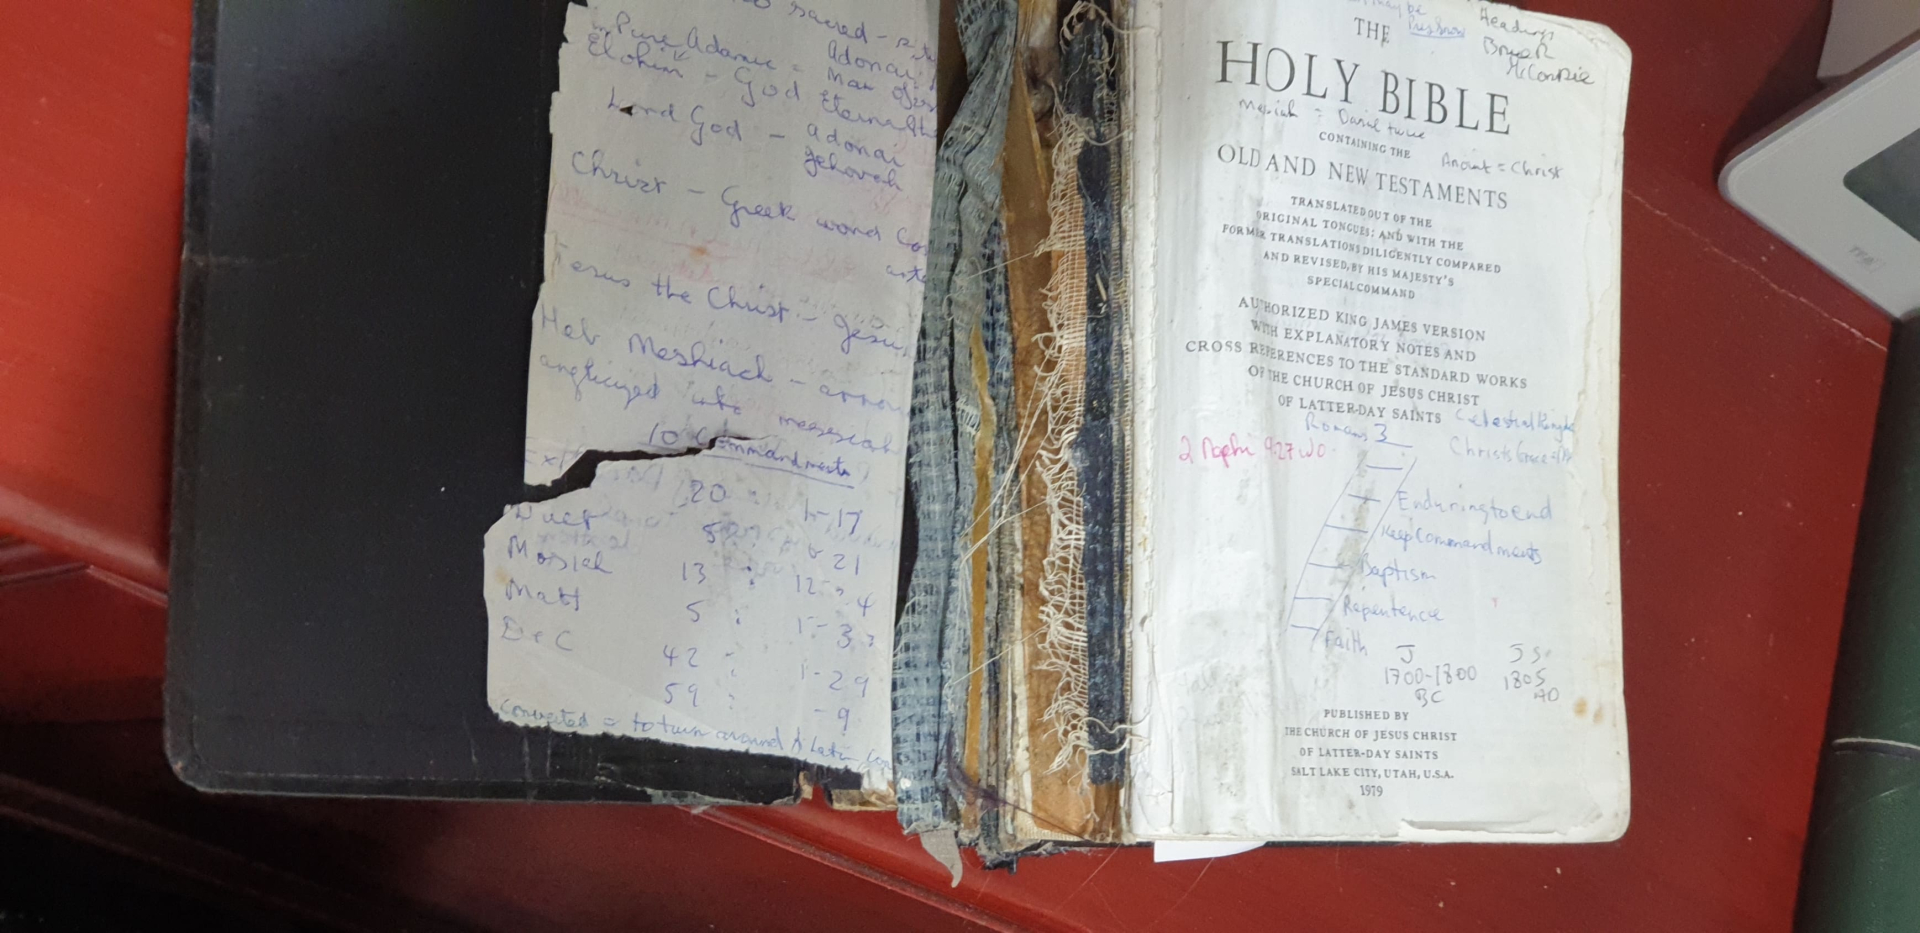 sacred -
Pure Adamic = Adonai
Man of
Elohim - God Eternal
Lord God - Adonai
Jehovah
Christ - Greek word
Jesus the Christ - Jesu
Heb Meshiach -
anglicized into messiah
10 Commandments
20 1-17
Duet 5 6 21
Mosiah 13 : 12
Matt 5 : 1-
D & C 42 : 1-29
59 : -9
Converted = to turn around
may be
Headings
Bruce R
McConkie
THE
HOLY BIBLE
Messiah = Daniel twice
CONTAINING THE
Anoint = Christ
OLD AND NEW TESTAMENTS
TRANSLATED OUT OF THE
ORIGINAL TONGUES: AND WITH THE
FORMER TRANSLATIONS DILIGENTLY COMPARED
AND REVISED, BY HIS MAJESTY'S
SPECIAL COMMAND
AUTHORIZED KING JAMES VERSION
WITH EXPLANATORY NOTES AND
CROSS REFERENCES TO THE STANDARD WORKS
OF THE CHURCH OF JESUS CHRIST
OF LATTER-DAY SAINTS
Celestial
Romans 3
2 Nephi 9:27
Christs Grace
Enduring to end
Keep Commandments
Baptism
Repentence
Faith
J JS
1700-1800 1805
BC AD
PUBLISHED BY
THE CHURCH OF JESUS CHRIST
OF LATTER-DAY SAINTS
SALT LAKE CITY, UTAH, U.S.A.
1979